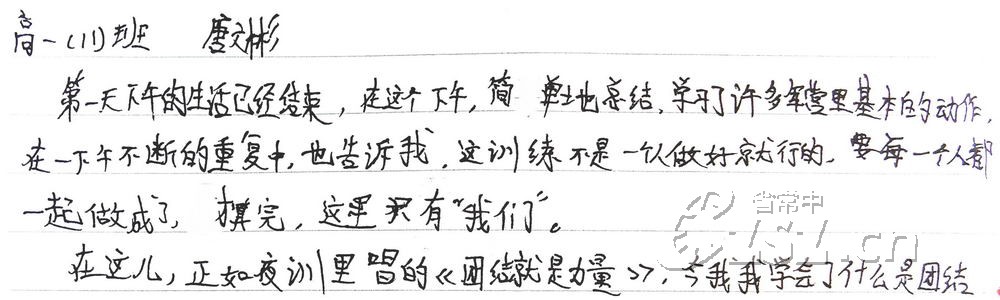 高一(11)班 唐文彬
第一天下午的生活已经结束，在这个下午，简单地总结，学习了许多军营里基本的动作，
在一下午不断的重复中，也告诉我，这训练不是一个人做好就行的，要每一个人都
一起做成了，算完，这里只有"我们"。
在这儿，正如夜训里唱的《团结就是力量》，令我我学会了什么是团结
省常中
CSZ.cn